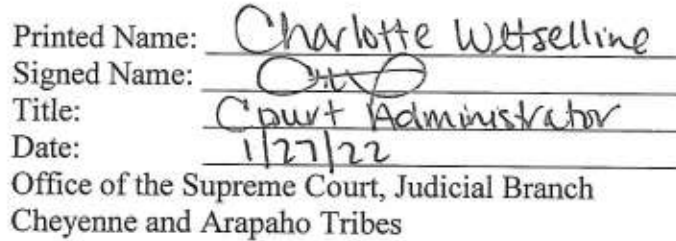 Printed Name: Charlotte Wetselline
Signed Name:
Title: Court Administrator
Date: 1/27/22
Office of the Supreme Court, Judicial Branch
Cheyenne and Arapaho Tribes